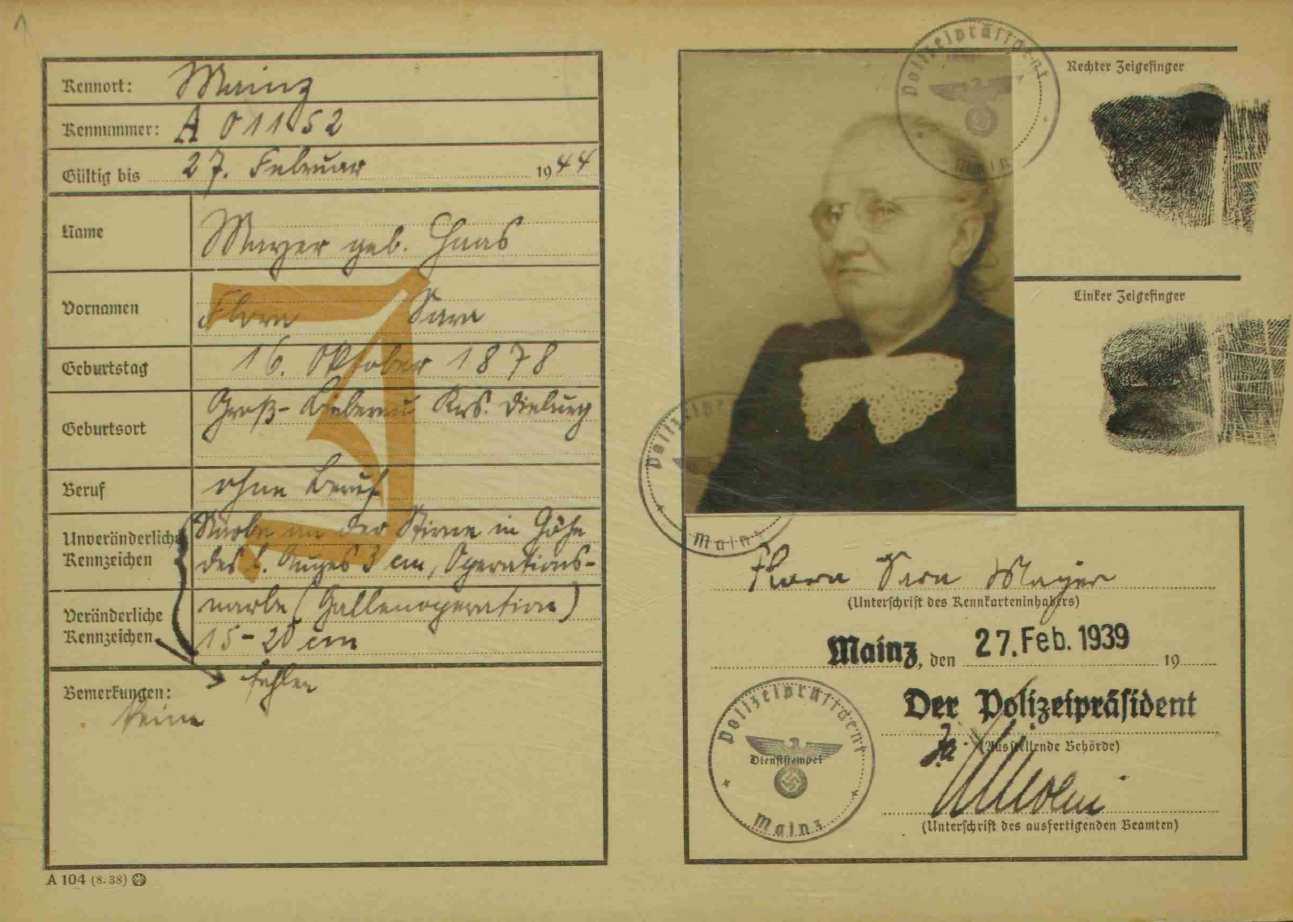 Kennort: Mainz
Kennummer: A 01152
Gültig bis 27. Februar 1944
Name Mayer geb. Haas
Vornamen Flora Sara
Geburtstag 16. Oktober 1878
Geburtsort Groß-Bieberau Krs. Dieburg
Beruf ohne Beruf
Unveränderliche Kennzeichen
Narbe an der Stirne in Höhe
des l. Auges 3 cm, Operations-
Veränderliche Kennzeichen
narbe (Gallenoperation)
15-20 cm
fehlen
Bemerkungen:
Keine
J
A 104 (8. 38)
Polizeipräsident
Mainz
Rechter Zeigefinger
Linker Zeigefinger
Polizeipräsident
Mainz
Flora Sara Mayer
(Unterschrift des Kennkarteninhabers)
Mainz, den 27. Feb. 1939 19
Der Polizeipräsident
(Ausstellende Behörde)
Polizeipräsident
Dienststempel
Mainz
(Unterschrift des ausfertigenden Beamten)